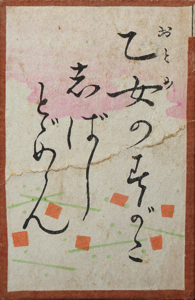 乙女のすがた
しばし
とゞめん
おとめ